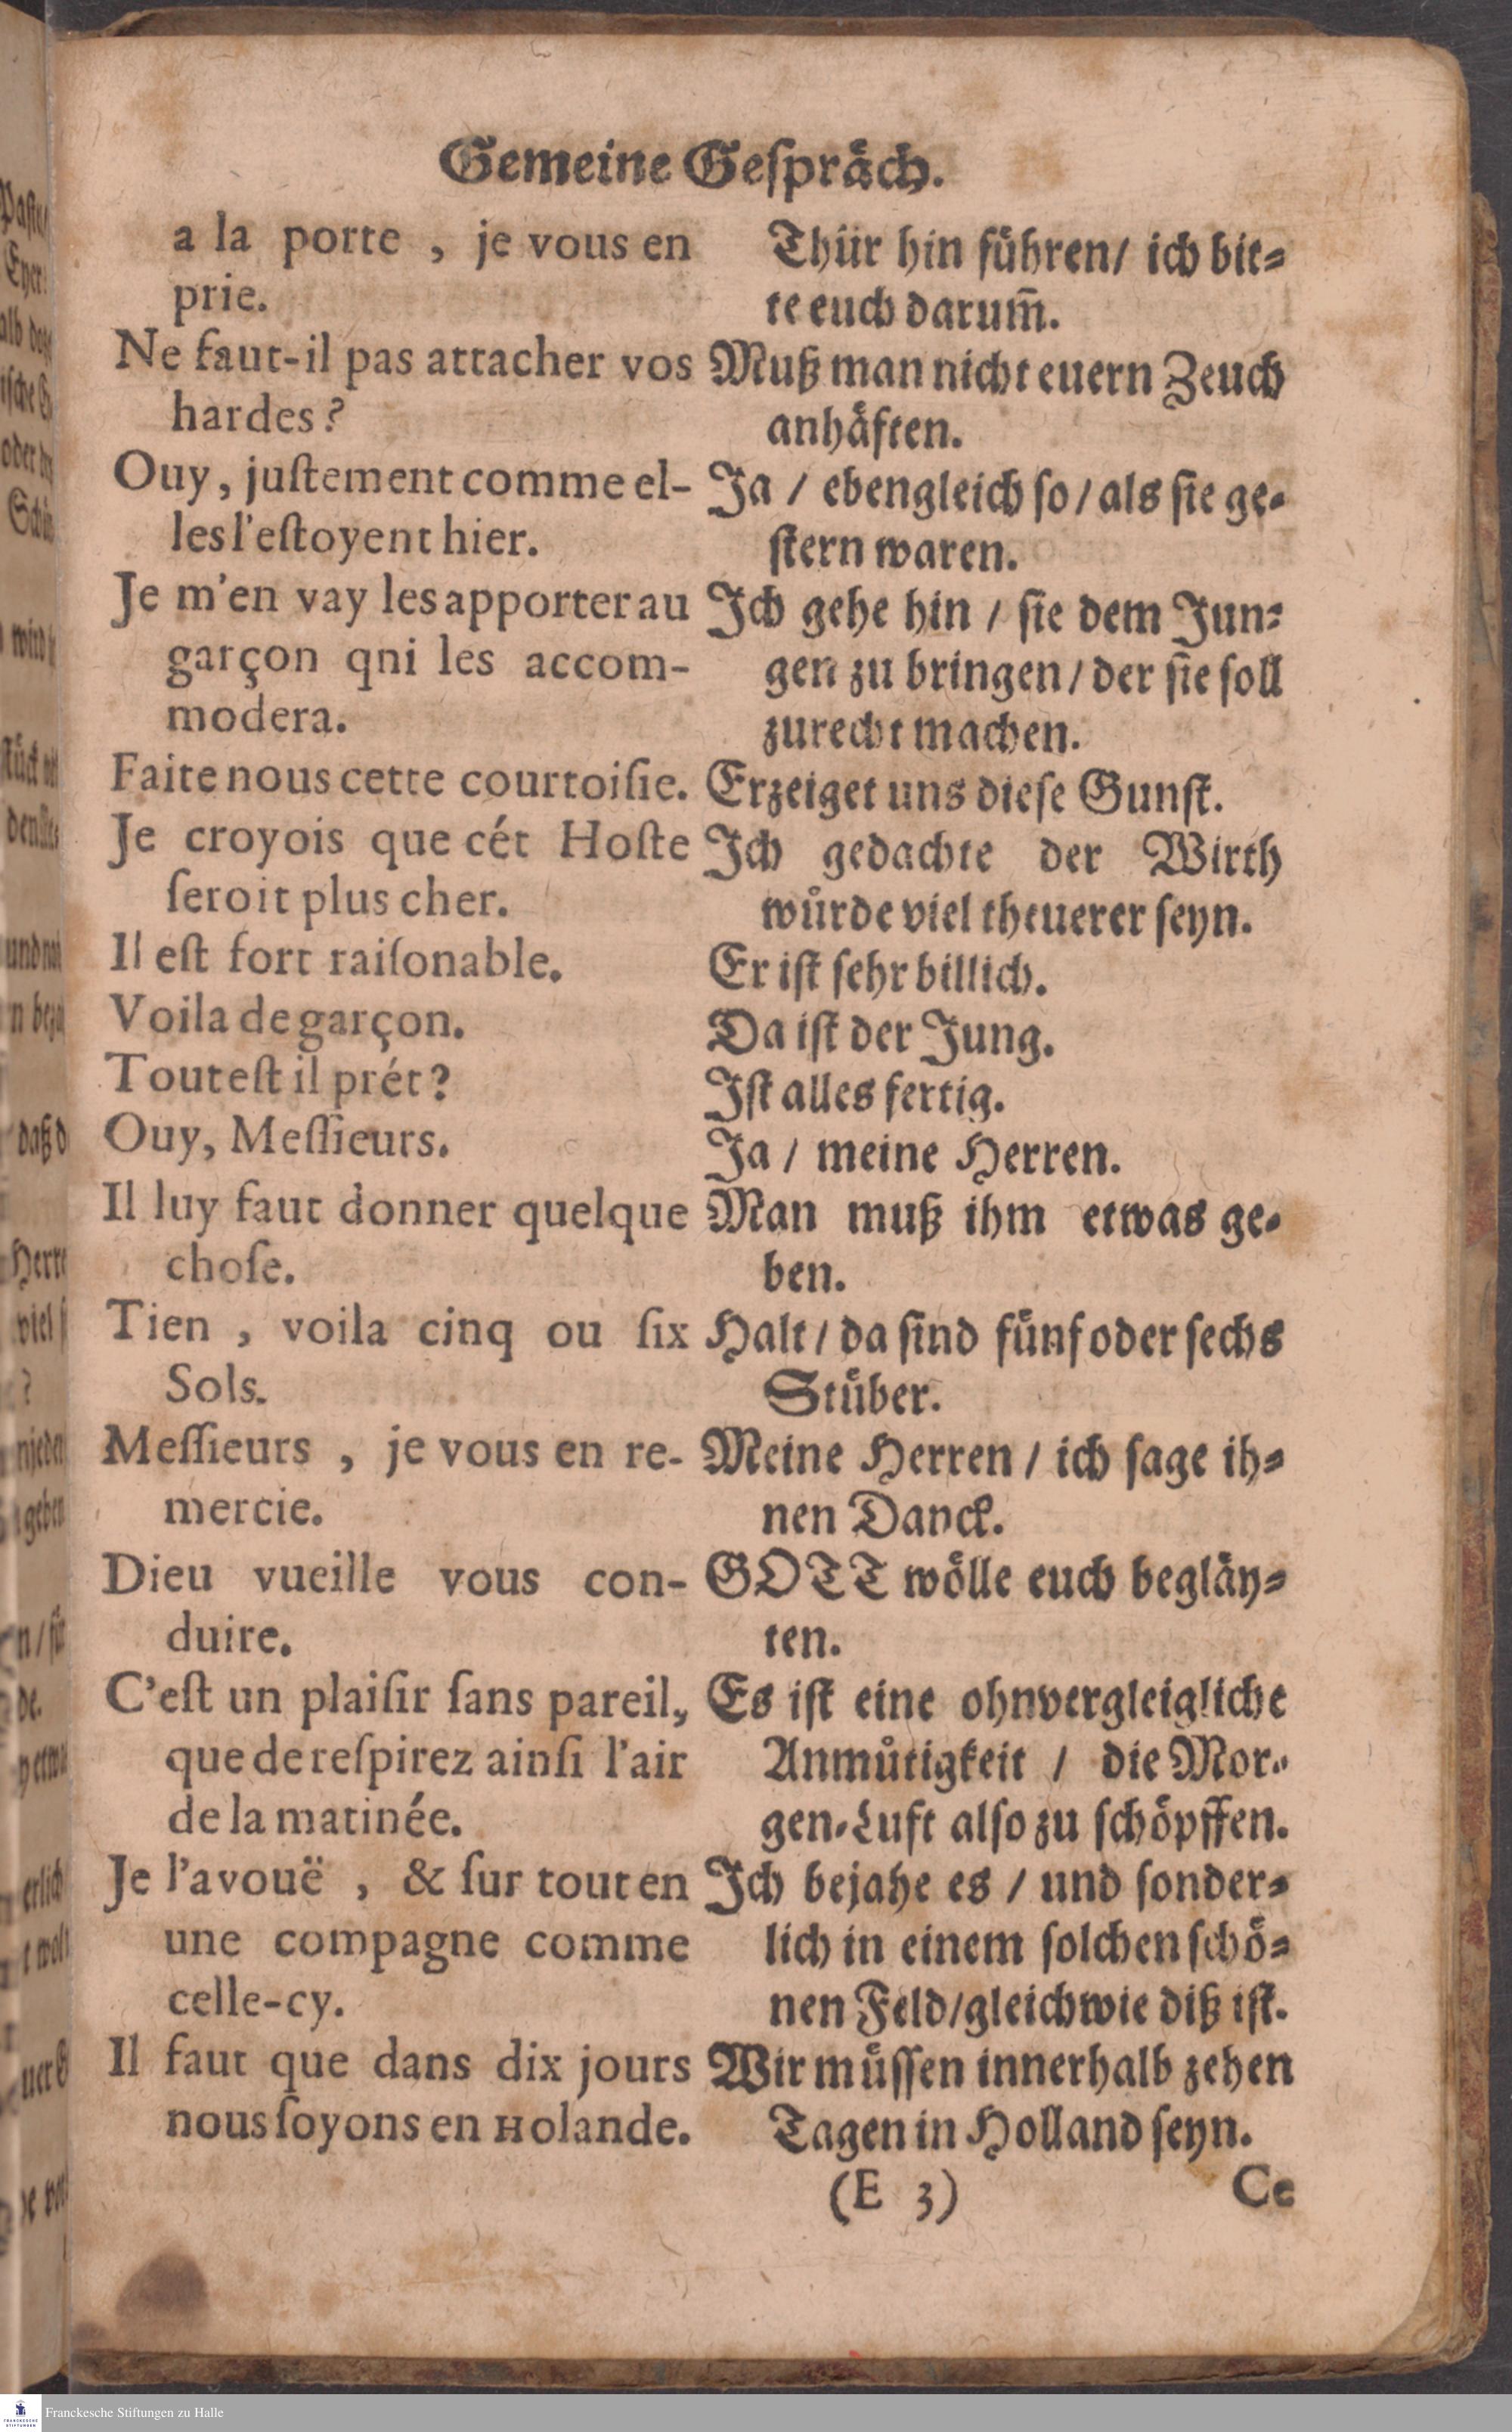 Gemeine Geſpräch.
a la porte , je vous en
prie.
Ne faut-il pas attacher vos
hardes?
Ouy, juſtement comme el-
les l'eſtoyent hier.
Je m'en vay les apporter au
garçon qni les accom-
modera.
Faite nous cette courtoiſie.
Je croyois que cét Hoſte
ſeroit plus cher.
Il eſt fort raiſonable.
Voila de garçon.
Tout eſt il prét?
Ouy, Meſſieurs.
Il luy faut donner quelque
choſe.
Tien , voila cinq ou ſix
Sols.
Meſſieurs , je vous en re-
mercie.
Dieu vueille vous con-
duire.
C'eſt un plaiſir ſans pareil,
que de reſpirez ainſi l'air
de la matinée.
Je l'avouë , & ſur tout en
une compagne comme
celle-cy.
Il faut que dans dix jours
nous ſoyons en Holande.
Thür hin fůhren/ ich bit-
te euch darum̃.
Muß man nicht euern Zeuch
anhäften.
Ja / ebengleich ſo/ als ſie ge-
ſtern waren.
Ich gehe hin / ſie dem Jun-
gen zu bringen/ der ſie ſoll
zurecht machen.
Erzeiget uns dieſe Gunſt.
Ich gedachte der Wirth
wůrde viel theuerer ſeyn.
Er iſt ſehr billich.
Da iſt der Jung.
Iſt alles fertig.
Ja / meine Herren.
Man muß ihm etwas ge-
ben.
Halt / da ſind fůnf oder ſechs
Stůber.
Meine Herren / ich ſage ih-
nen Danck.
GOTT wölle euch begläy-
ten.
Es iſt eine ohnvergleigliche
Anmůtigkeit / die Mor-
gen-Luft alſo zu ſchöpffen.
Ich bejahe es / und ſonder-
lich in einem ſolchen ſchö-
nen Feld/gleichwie diß iſt.
Wir můſſen innerhalb zehen
Tagen in Holland ſeyn.
(E 3)
Ce
Franckesche Stiftungen zu Halle